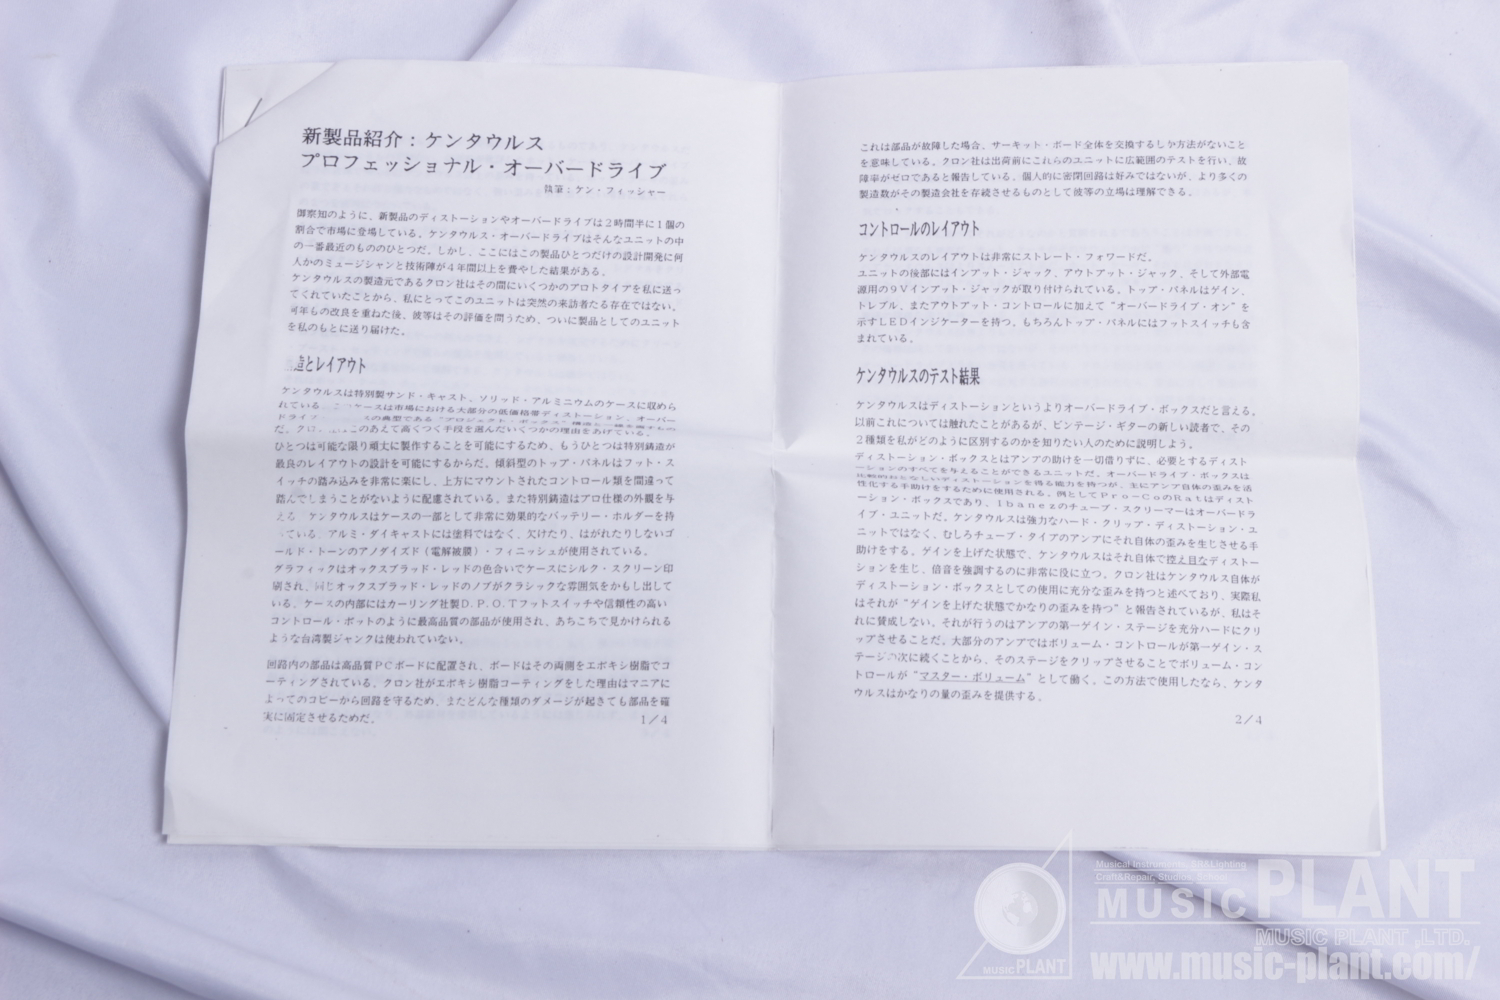 新製品紹介：ケンタウルス
プロフェッショナル・オーバードライブ
執筆：ケン・フィッシャー
御察知のように、新製品のディストーションやオーバードライブは２時間半に１個の
割合で市場に登場している。ケンタウルス・オーバードライブはそんなユニットの中
の一番最近のもののひとつだ。しかし、ここにはこの製品ひとつだけの設計開発に何
人かのミュージシャンと技術陣が４年間以上を費やした結果がある。
ケンタウルスの製造元であるクロン社はその間にいくつかのプロトタイプを私に送っ
てくれていたことから、私にとってこのユニットは突然の来訪者たる存在ではない。
何年もの改良を重ねた後、彼等はその評価を問うため、ついに製品としてのユニット
を私のもとに送り届けた。
造とレイアウト
ケンタウルスは特別製サンド・キャスト、ソリッド・アルミニウムのケースに収めら
れている。このケースは市場における大部分の低価格帯ディストーション、オーバー
ドライブ の典型である“プロジェクト・ボックス”構造と一線を画すもの
だ。クロ このあえて高くつく手段を選んだいくつかの理由をあげている。
ひとつは可能な限り頑丈に製作することを可能にするため、もうひとつは特別鋳造が
最良のレイアウトの設計を可能にするからだ。傾斜型のトップ・パネルはフット・ス
イッチの踏み込みを非常に楽にし、上方にマウントされたコントロール類を間違って
踏んでしまうことがないように配慮されている。また特別鋳造はプロ仕様の外観を与
える。ケンタウルスはケースの一部として非常に効果的なバッテリー・ホルダーを持
っている。アルミ・ダイキャストには塗料ではなく、欠けたり、はがれたりしないゴ
ールド・トーンのアノダイズド（電解被膜）・フィニッシュが使用されている。
グラフィックはオックスブラッド・レッドの色合いでケースにシルク・スクリーン印
刷され、同じオックスブラッド・レッドのノブがクラシックな雰囲気をかもし出して
いる。ケースの内部にはカーリング社製Ｄ．Ｐ．Ｏ．Ｔフットスイッチや信頼性の高い
コントロール・ポットのように最高品質の部品が使用され、あちこちで見かけられる
ような台湾製ジャンクは使われていない。
回路内の部品は高品質ＰＣボードに配置され、ボードはその両側をエポキシ樹脂でコ
ーティングされている。クロン社がエポキシ樹脂コーティングをした理由はマニアに
よってのコピーから回路を守るため、またどんな種類のダメージが起きても部品を確
実に固定させるためだ。
１／４
これは部品が故障した場合、サーキット・ボード全体を交換するしか方法がないこと
を意味している。クロン社は出荷前にこれらのユニットに広範囲のテストを行い、故
障率がゼロであると報告している。個人的に密閉回路は好みではないが、より多くの
製造数がその製造会社を存続させるものとして彼等の立場は理解できる。
コントロールのレイアウト
ケンタウルスのレイアウトは非常にストレート・フォワードだ。
ユニットの後部にはインプット・ジャック、アウトプット・ジャック、そして外部電
源用の９Ｖインプット・ジャックが取り付けられている。トップ・パネルはゲイン、
トレブル、またアウトプット・コントロールに加えて“オーバードライブ・オン”を
示すＬＥＤインジケーターを持つ。もちろんトップ・パネルにはフットスイッチも含
まれている。
ケンタウルスのテスト結果
ケンタウルスはディストーションというよりオーバードライブ・ボックスだと言える。
以前これについては触れたことがあるが、ビンテージ・ギターの新しい読者で、その
２種類を私がどのように区別するのかを知りたい人のために説明しよう。
ディストーション・ボックスとはアンプの助けを一切借りずに、必要とするディスト
ーションのすべてを与えることができるユニットだ。オーバードライブ・ボックスは
比較的おとなしいディストーションを得る能力を持つが、主にアンプ自体の歪みを活
性化する手助けをするために使用される。例としてＰｒｏ-ＣｏのＲａｔはディスト
ーション・ボックスであり、Ｉｂａｎｅｚのチューブ・スクリーマーはオーバードラ
イブ・ユニットだ。ケンタウルスは強力なハード・クリップ・ディストーション・ユ
ニットではなく、むしろチューブ・タイプのアンプにそれ自体の歪みを生じさせる手
助けをする。ゲインを上げた状態で、ケンタウルスはそれ自体で控え目なディストー
ションを生じ、倍音を強調するのに非常に役に立つ。クロン社はケンタウルス自体が
ディストーション・ボックスとしての使用に充分な歪みを持つと述べており、実際私
はそれが“ゲインを上げた状態でかなりの歪みを持つ”と報告されているが、私はそ
れに賛成しない。それが行うのはアンプの第一ゲイン・ステージを充分ハードにクリ
ップさせることだ。大部分のアンプではボリューム・コントロールが第一ゲイン・ス
テージの次に続くことから、そのステージをクリップさせることでボリューム・コン
トロールが“マスター・ボリューム”として働く。この方法で使用したなら、ケンタ
ウルスはかなりの量の歪みを提供する。
２／４
Musical Instruments, PA&Lighting
Craft&Repair, Studios, School
MUSIC PLANT
MUSIC PLANT ,LTD.
MUSIC PLANT
www.music-plant.com/